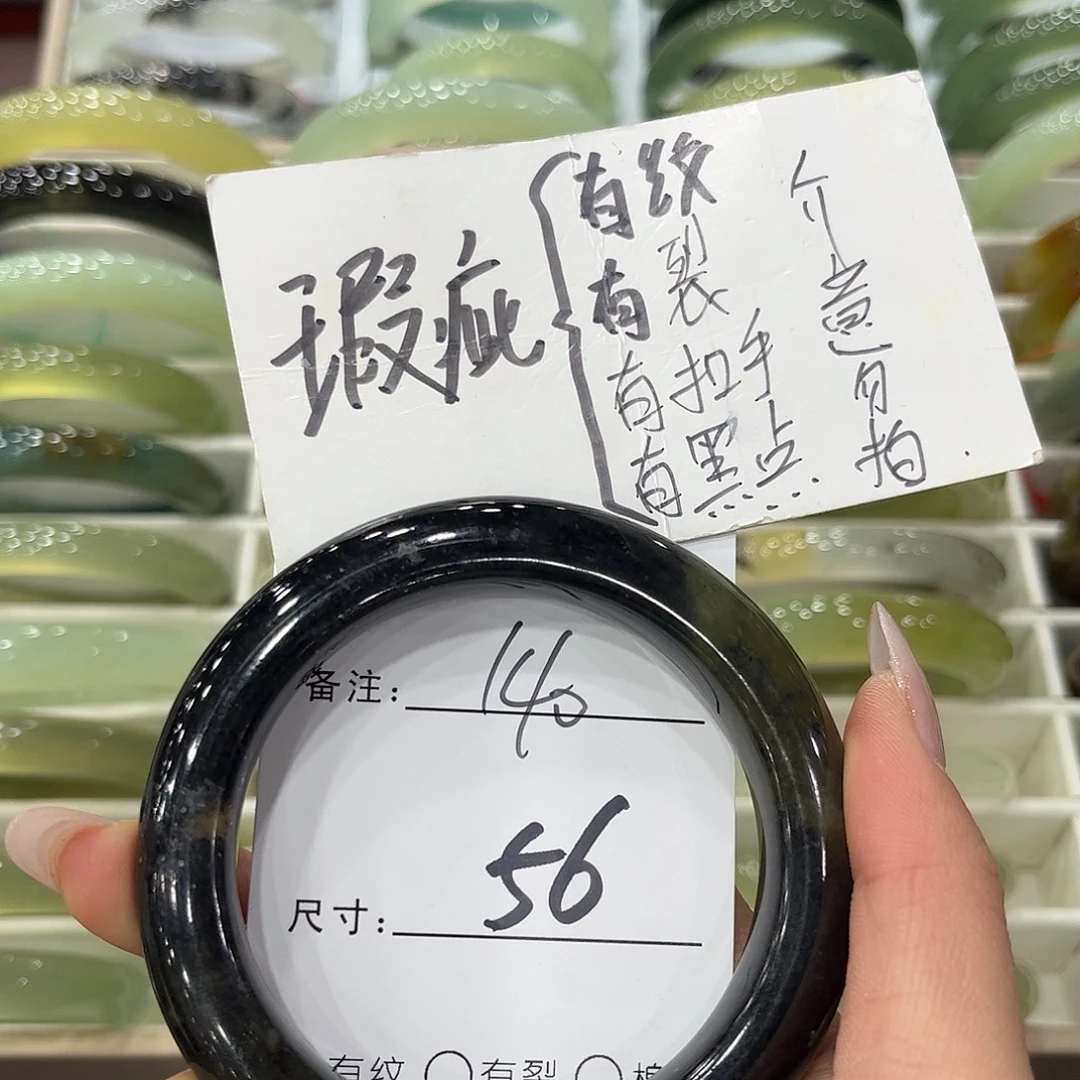 瑕疵
有纹
有裂
有扣手
有黑点
介意勿拍.
备注: 140
尺寸: 56
有纹 ○ 有裂 ○ 棉